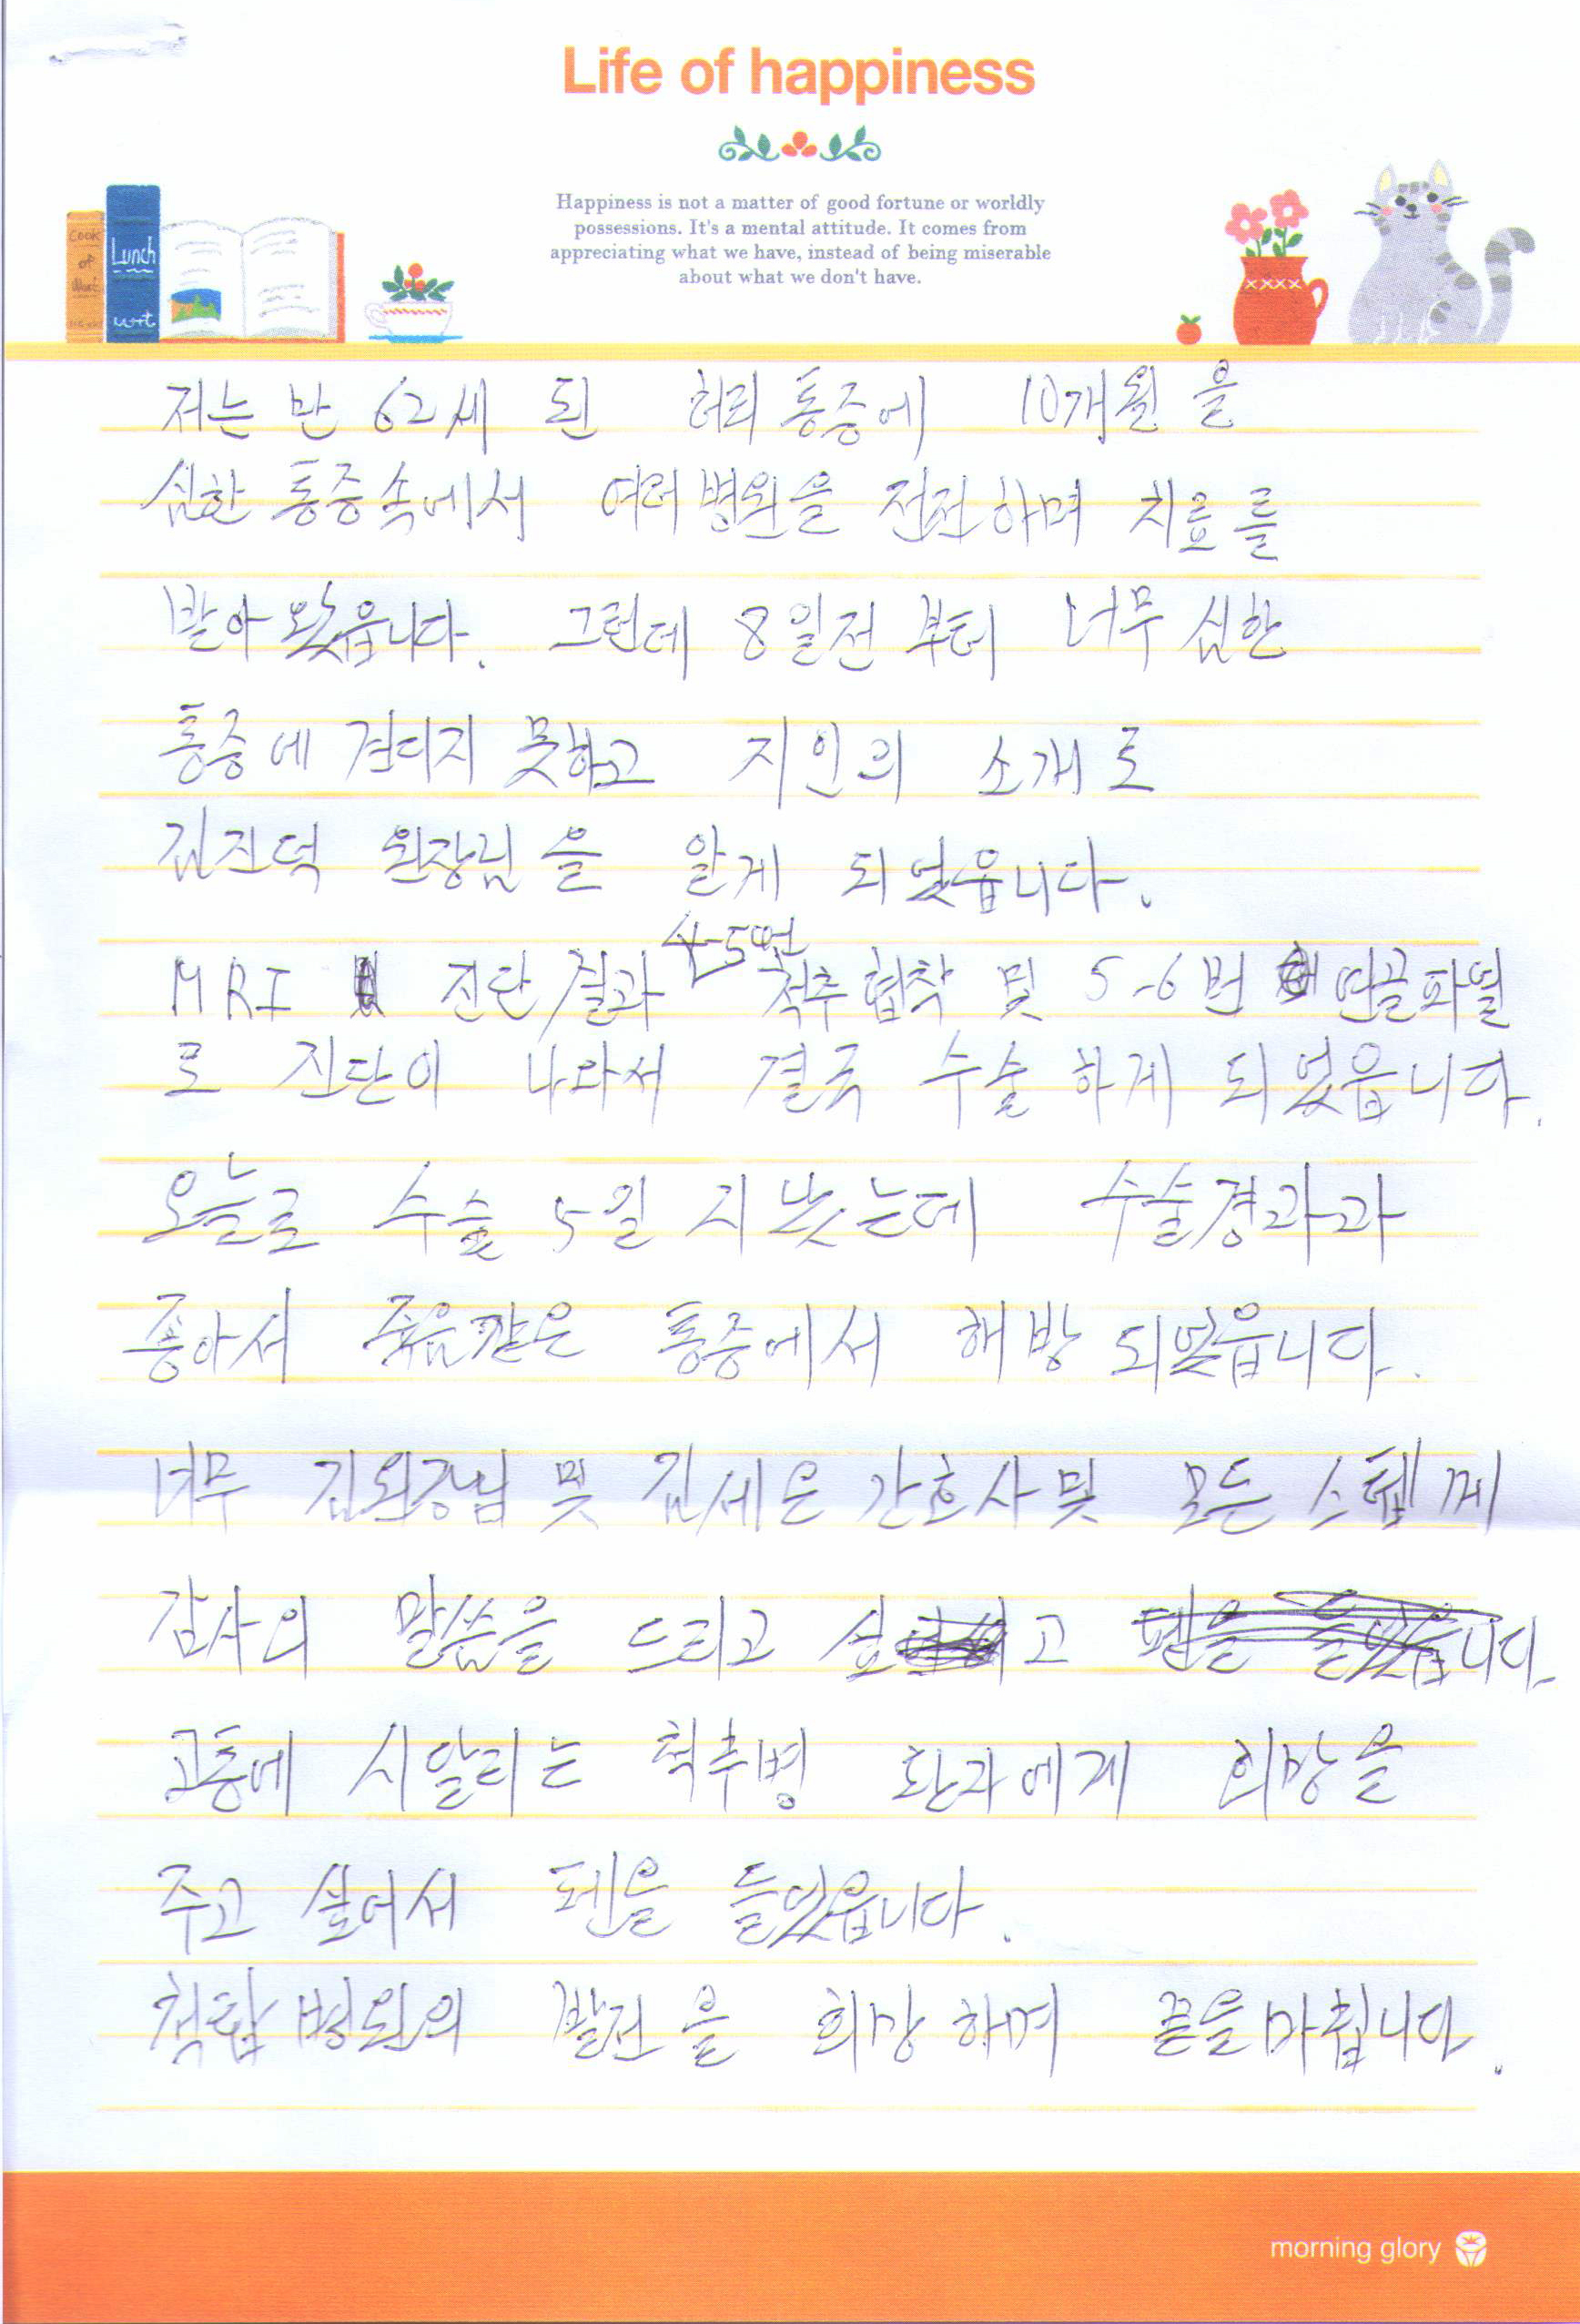 Life of happiness
Happiness is not a matter of good fortune or worldly
possessions. It's a mental attitude. It comes from
appreciating what we have, instead of being miserable
about what we don't have.
Cook
of
Lunch
저는 만 62세 된 허리통증에 10개월을
심한 통증속에서 여러병원을 전전하며 치료를
받아 왔읍니다. 그런데 8일전 부터 너무 심한
통증에 견디지 못하고 지인의 소개로
김진덕 원장님을 알게 되었읍니다.
4-5번
MRI 진단/결과 척추협착 및 5-6번 연골파열
로 진단이 나와서 결국 수술 하게 되었읍니다.
오늘로 수술 5일 지났는데 수술경과과
좋아서 죽음같은 통증에서 해방 되었읍니다.
너무 김원장님 및 김세은 간호사 및 모든 스텝께
감사의 말씀을 드리고 고 펜을 들었읍니다.
고통에 시달리는 척추병 환자에게 희망을
주고 싶어서 펜을 들었읍니다.
척탑병원의 발전을 희망하며 끝을 마칩니다.
morning glory